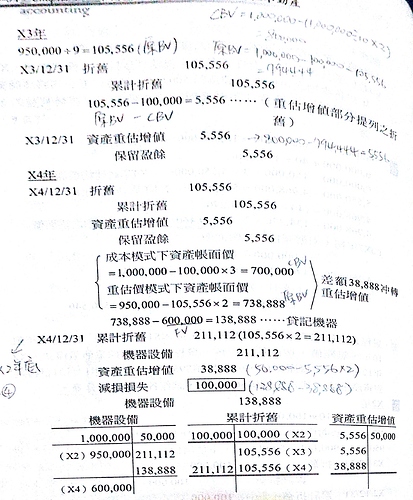 accounting
CBV = 1,000,000-(1,000,000÷10×2)
X3年
950,000 ÷ 9 = 105,556
X3/12/31 折舊 105,556
累計折舊 105,556
105,556 - 100,000 = 5,556 …… (重估增值部分提列之折舊)
- CBV
X3/12/31 資產重估增值 5,556
保留盈餘 5,556
X4年
X4/12/31 折舊 105,556
累計折舊 105,556
資產重估增值 5,556
保留盈餘 5,556
成本模式下資產帳面價
=1,000,000-100,000×3 = 700,000
CBV
重估價模式下資產帳面價
=950,000-105,556×2 = 738,888
差額38,888沖轉重估增值
738,888-600,000=138,888 ……貸記機器
FV
X4/12/31 累計折舊 211,112 (105,556 × 2 = 211,112)
機器設備 211,112
資產重估增值 38,888 (50,000-5,556×2)
減損損失 100,000 (138,888-38,888)
機器設備 138,888
年底
④
機器設備 累計折舊 資產重估增值
1,000,000 50,000 100,000 100,000 (X2) 5,556 50,000
(X2) 950,000 211,112 105,556 (X3) 5,556
138,888 211,112 105,556 (X4) 38,888
(X4) 600,000